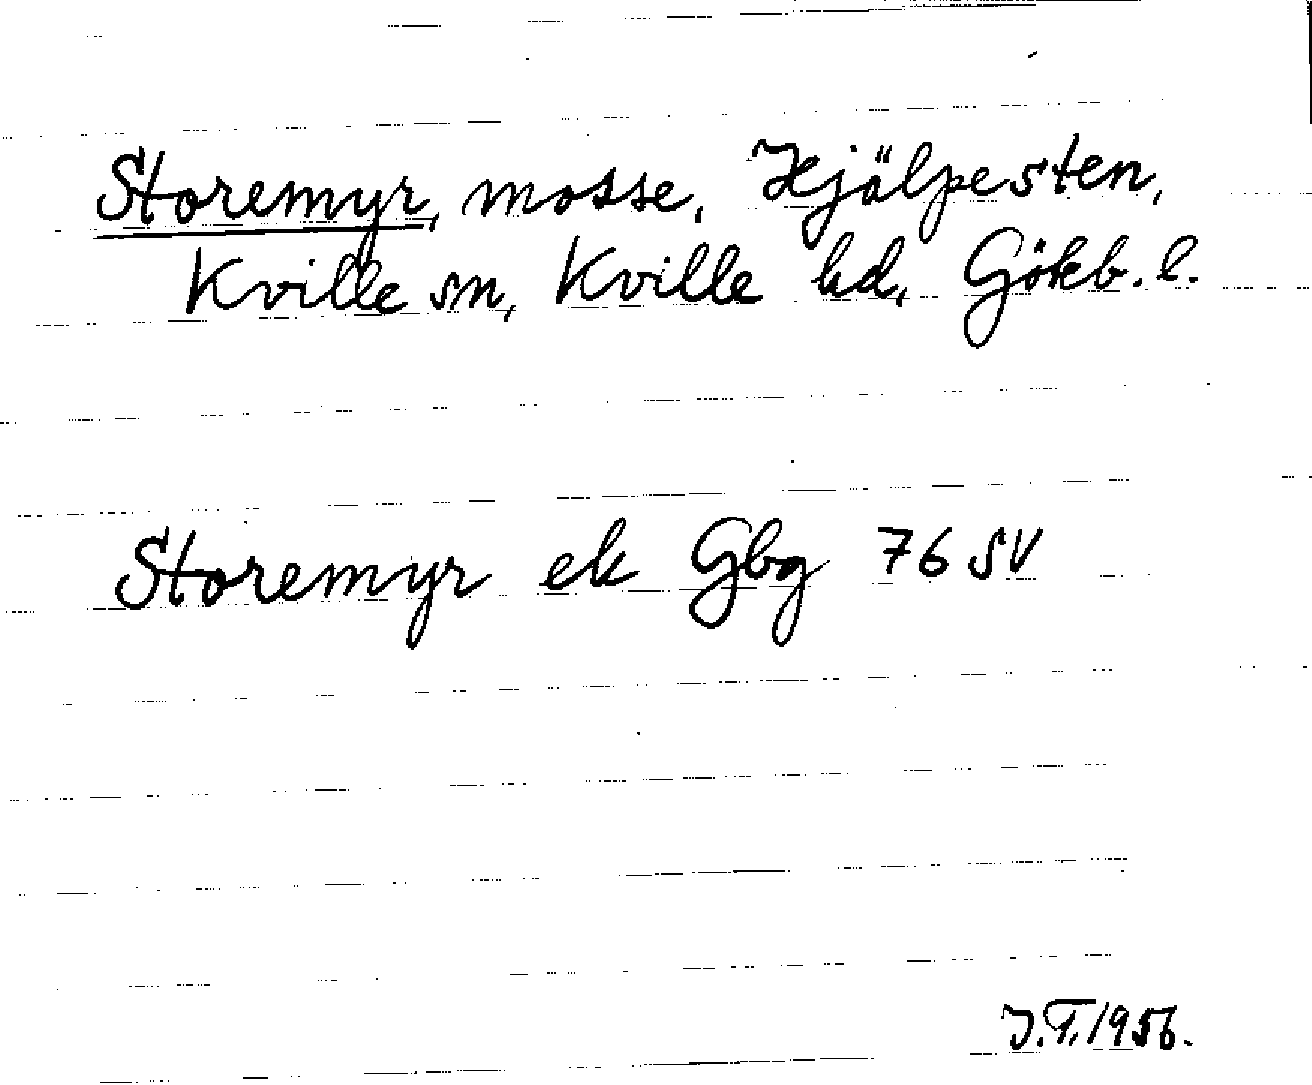 Storemyr, mosse, Hjälpesten,
Kville sn, Kville hd, Gökb. l.
Storemyr ek Gbg 76 SV
J.T. 1956.